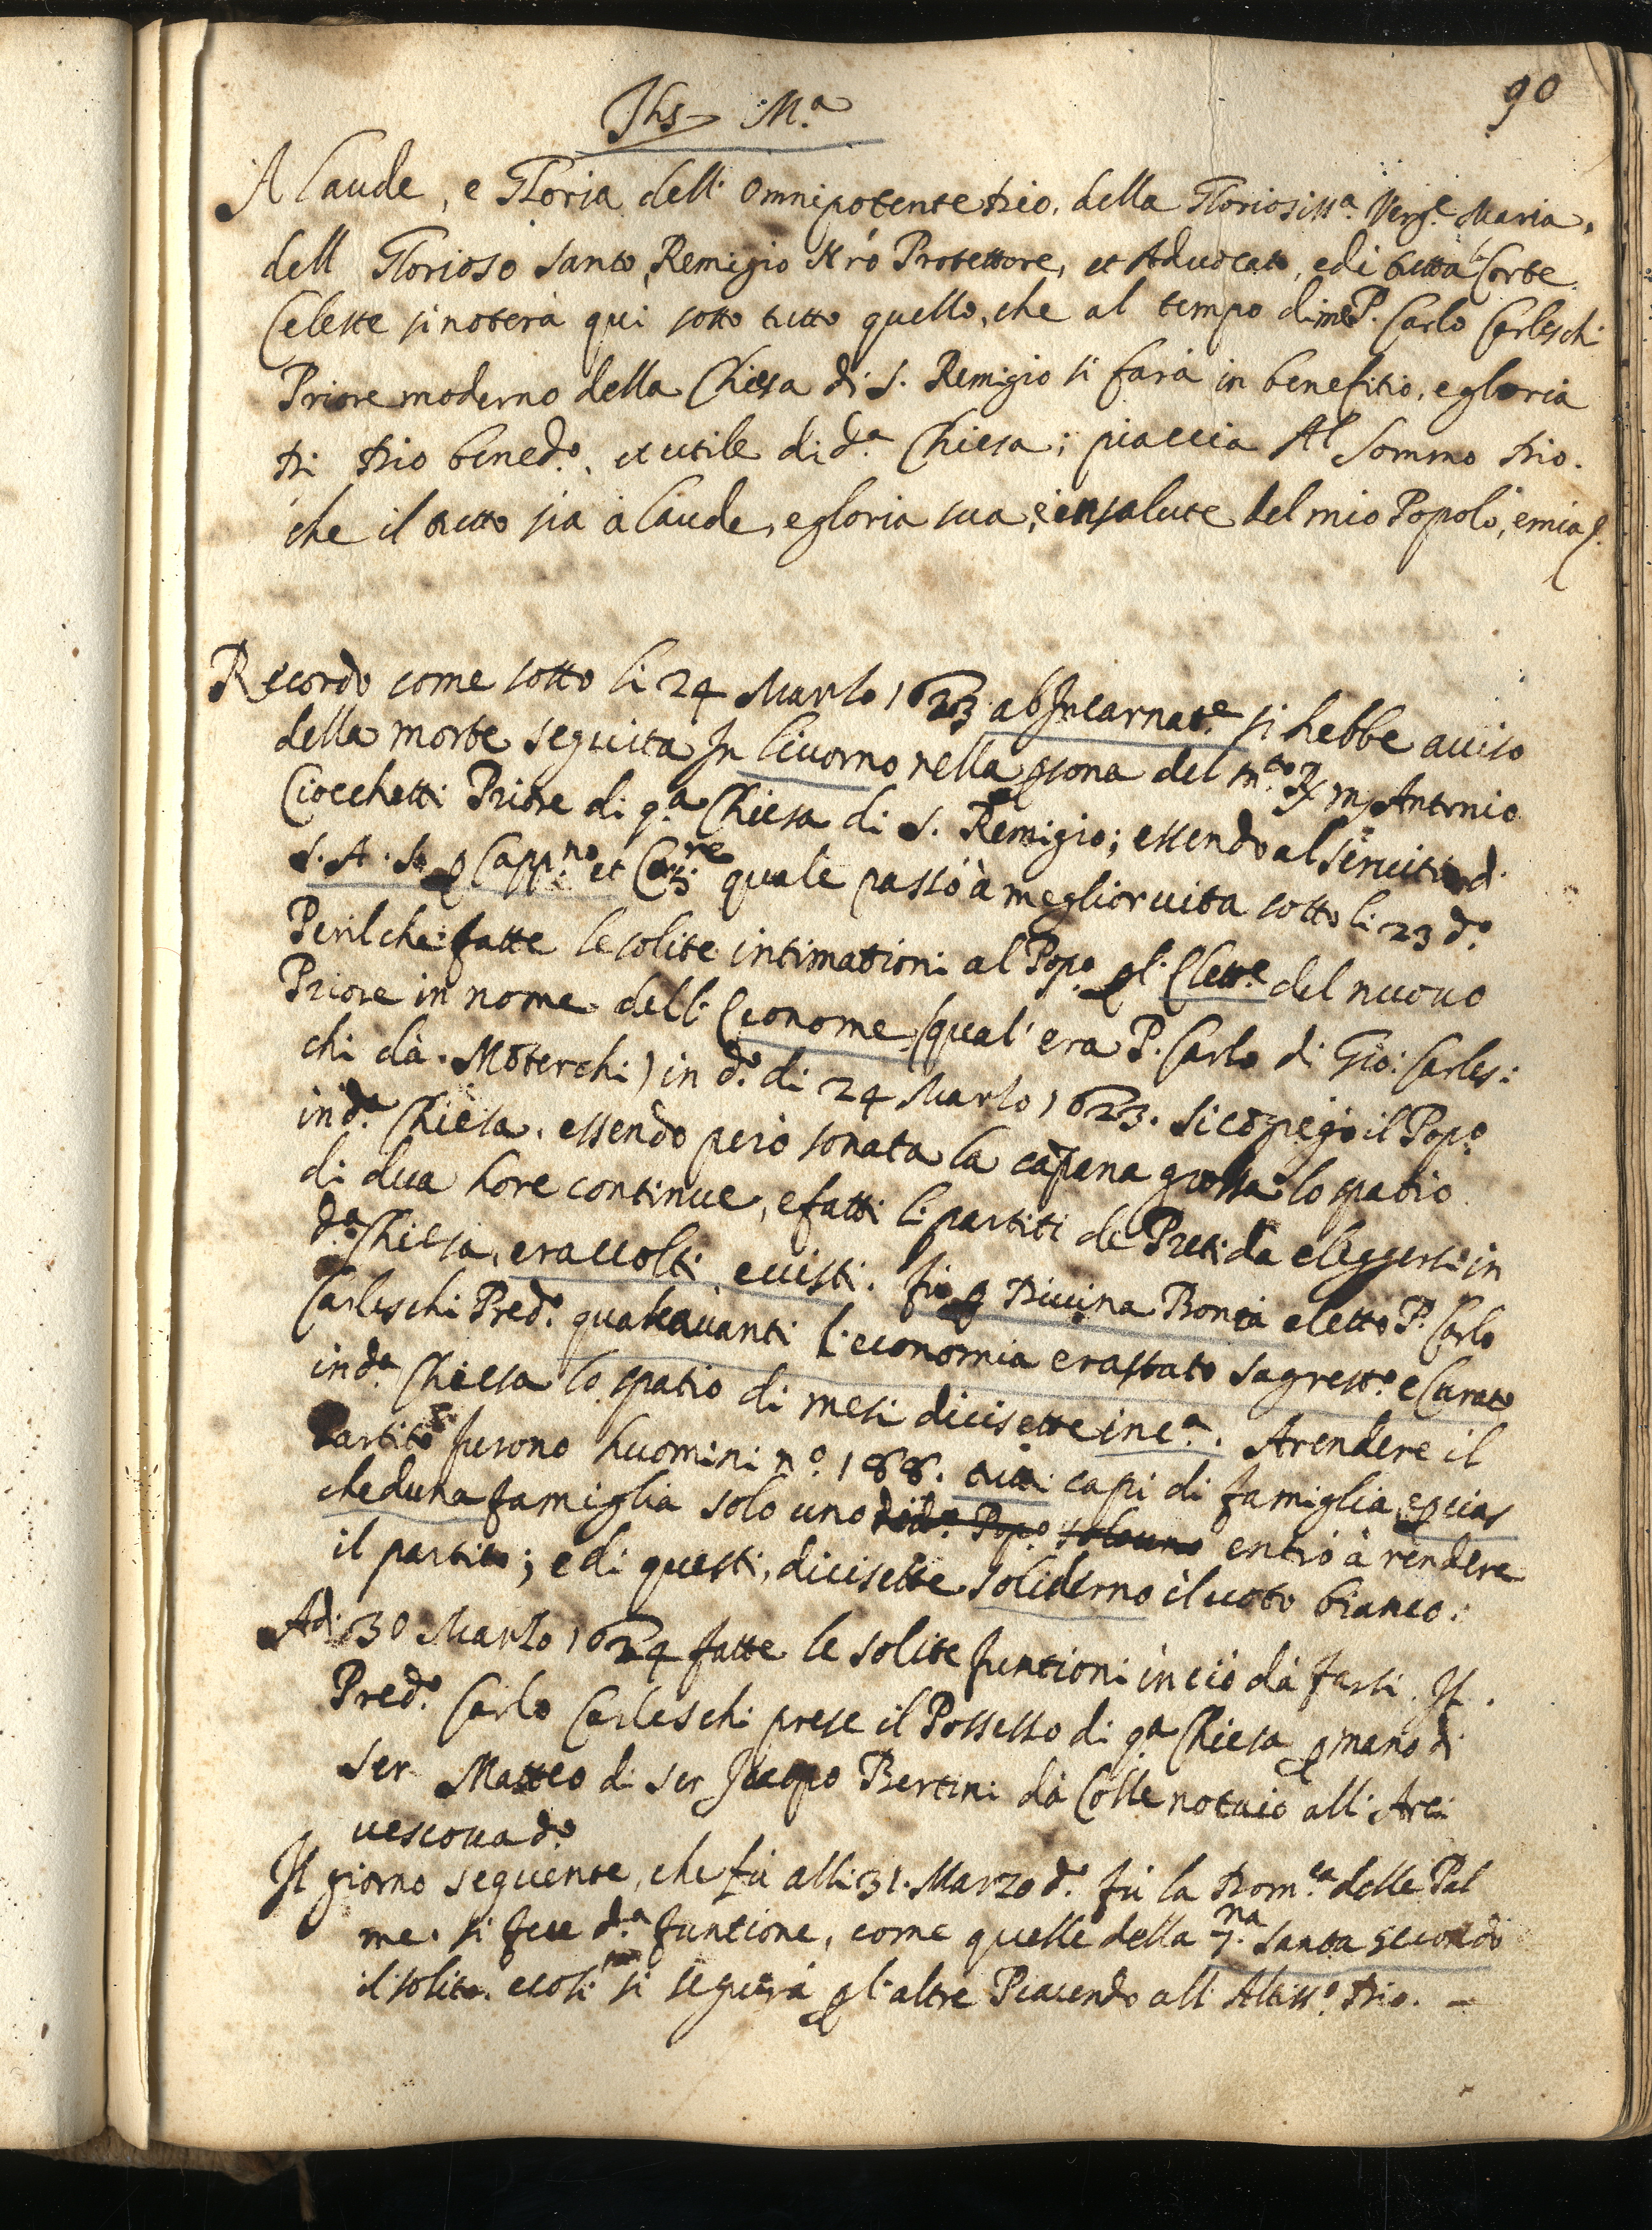 90
Jhs M.a
A laude, e Gloria dell' Omnipotente Dio, della Gloriosiss.a Verg.e Maria,
dell Glorioso Santo Remigio Nrõ Protettore, et Advocato, e di tutta la Corte
Celeste si noterà qui sotto tutto quello, che al tempo di me P. Carlo Carleschi
Priore moderno della Chiesa di S. Remigio si farà in benefitio, e gloria
Di Dio bened.o, et utile di d.a Chiesa; piaccia Al Sommo Dio.
che il tutto sia à laude, e gloria sua, e in salute del mio Popolo, e mia
Ricordo come sotto li 24 Marzo 1623 ab Incarnat.e si hebbe auiso
della morte seguita In Liuorno nella psona del m.to R. m Antonio
Ciocchetti Priore di q.a Chiesa di S. Remigio; essendo al seruitio di
S. A. S. p Capp.no et quale passò à meglior uita sotto li 23 d.o
Peril che fatte le solite intimationi al Pop.o p l' Elett.e del nuouo
Priore in nome dell' Econome (qual' era P. Carlo di Gio: Carles:
chi dà Moterchi) in d.o di 24 Marzo 1623. si cõgregò il Pop.o
in d.a Chiesa, essendo però sonata la capana grossa lo spatio
di dua hore continue, e fatti li partiti de Preti da eleggersi in
d.a Chiesa, e raccolti e uisti. fu p Diuina Bontà eletto P. Carlo
Carleschi Pred.o quale auanti l'economia era stato Sagrest.o e Curato
in d.a Chiesa lo spatio di mesi dicisette in c.a. A rendere il
Partito furono huomini n.o 188. tutti capi di famiglia, e p cias
cheduna famiglia solo uno di d.o Pop.o solo uno entrò à rendere
il partito; e di questi, dicisette soli derno il uoto bianco:
Adi 30 Marzo 1624 fatte le solite funtioni in ciò dà farsi. Il
Pred.o Carlo Carleschi prese il Possesso di q.a Chiesa p mano di
Ser Matteo di ser Jacopo Bertini dà Colle notaio all' Arci
uescouad.o
Il giorno seguente, che fù alli 31. Marzo d.o fù la Dom.ca delle Pal
me. si fece d.a funtione, come quelle della 7.na Santa secondo
il solito, e cosi si seguirà p l' altre Piacendo all' Altiss.o Dio. —